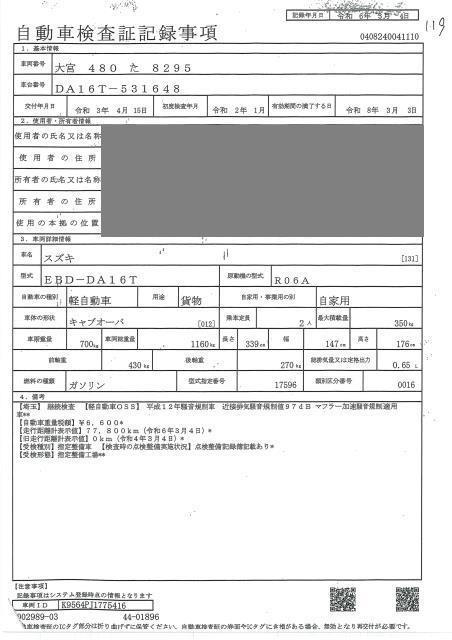 記録年月日 令和 6年 3月 4日
119
自動車検査証記録事項
0408240041110
1. 基本情報
車両番号 大宮 480 た 8295
車台番号 DA16T-531648
交付年月日 令和 3年 4月 15日 初度検査年月 令和 2年 1月 有効期間の満了する日 令和 8年 3月 3日
2. 使用者・所有者情報
使用者の氏名又は名称
使用者の住所
所有者の氏名又は名称
所有者の住所
使用の本拠の位置
3. 車両詳細情報
車名 スズキ [131]
型式 EBD-DA16T 原動機の型式 R06A
自動車の種別 軽自動車 用途 貨物 自家用・事業用の別 自家用
車体の形状 キャブオーバ [012] 乗車定員 2人 最大積載量 350kg
車両重量 700kg 車両総重量 1160kg 長さ 339cm 幅 147cm 高さ 176cm
前軸重 430kg 後軸重 270kg 総排気量又は定格出力 0.65 L
燃料の種類 ガソリン 型式指定番号 17596 類別区分番号 0016
4. 備考
【埼玉】 継続検査 【軽自動車OSS】 平成12年騒音規制車 近接排気騒音規制値97dB マフラー加速騒音規制適用
車**
【自動車重量税額】￥6,600*
【走行距離計表示値】77,800km（令和6年3月4日）*
【旧走行距離計表示値】0km（令和4年3月4日）*
【受検種別】指定整備車 【検査時の点検整備実施状況】点検整備記録簿記載あり*
【受検形態】指定整備工場**
【注意事項】
記録事項はシステム登録時点の情報となります
車両ID K9564PJ1775416
002989-03 44-01896